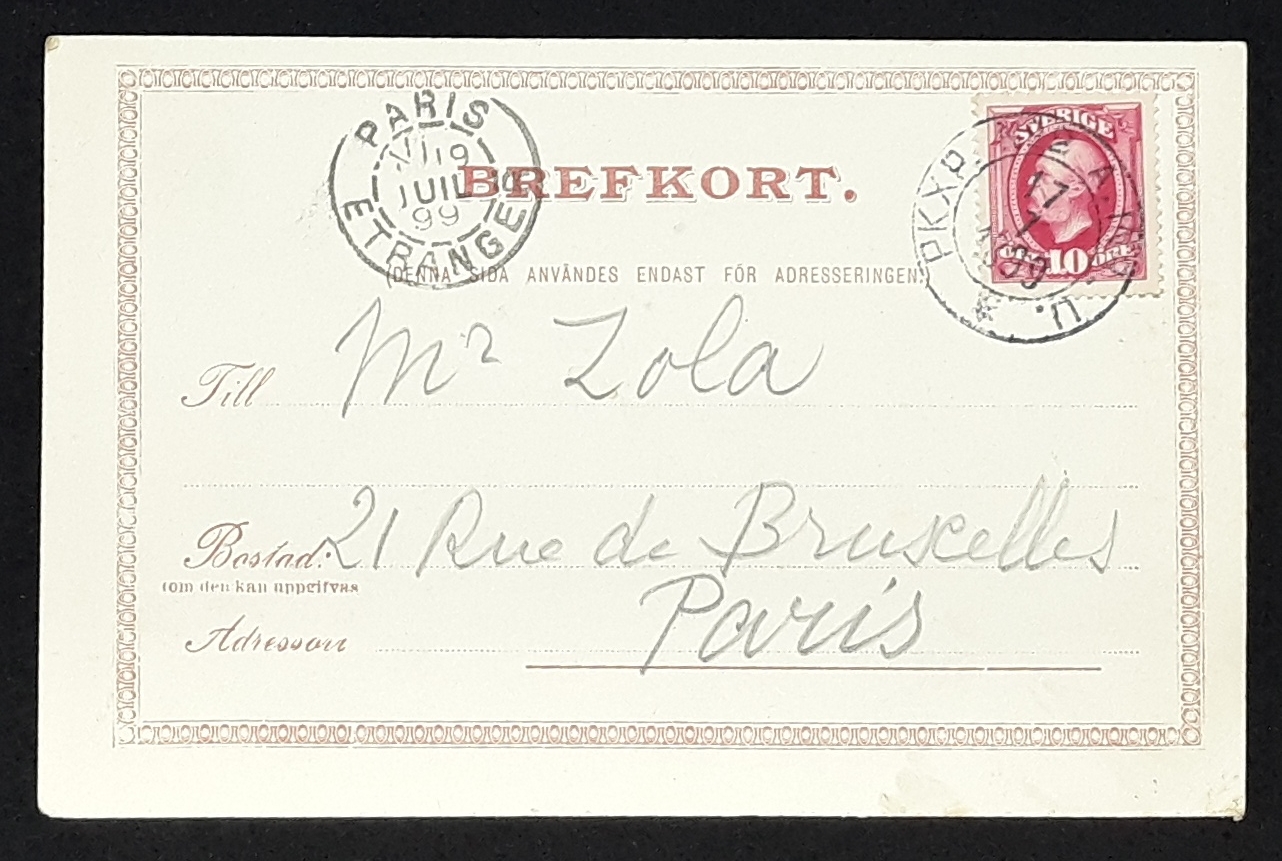 PARIS
19
JUIL
99
ETRANGER
BREFKORT.
SVERIGE
10 ÖRE
PKXP.
17
7
1899
(DENNA SIDA ANVÄNDES ENDAST FÖR ADRESSERINGEN.)
Till Mr Zola
Bostad: 21 Rue de Bruxelles
(om den kan uppgifvas
Paris
Adressort